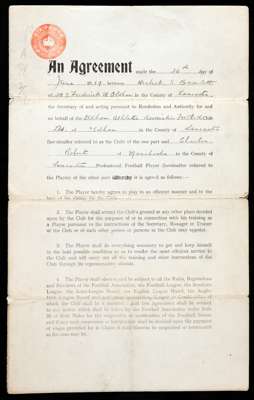 An Agreement made the 26th day of
June 19 between Herbert
of Frederick St Oldham in the County of Lancaster
the Secretary of and acting pursuant to Resolution and Authority for and
on behalf of the Oldham Athletic Association Football Club
of Oldham in the County of Lancaster
(hereinafter referred to as the Club) of the one part and Charles
Roberts of Manchester in the County of
Lancaster Professional Football Player (hereinafter referred to
as the Player) of the other part whereby it is agreed as follows:—
1. The Player hereby agrees to play in an efficient manner and to the
best of his ability for the Club.
2. The Player shall attend the Club's ground or any other place decided
upon by the Club for the purposes of or in connection with his training as
a Player pursuant to the instructions of the Secretary, Manager or Trainer
of the Club or of such other person or persons as the Club may appoint.
3. The Player shall do everything necessary to get and keep himself
in the best possible condition so as to render the most efficient service to
the Club and will carry out all the training and other instructions of the
Club through its representative officials.
4. The Player shall observe and be subject to all the Rules, Regulations
and Bye-laws of the Football Association, the Football League, the Southern
League,
which the Club shall be a member. And this Agreement shall be subject
to any action which shall be taken by the Football Association under Rule
of their Rules for the suspension or termination of the Football Season
and if any such suspension or termination shall be decided upon the payment
of wages provided for in Clause 8 shall likewise be suspended or terminated
as the case may be.